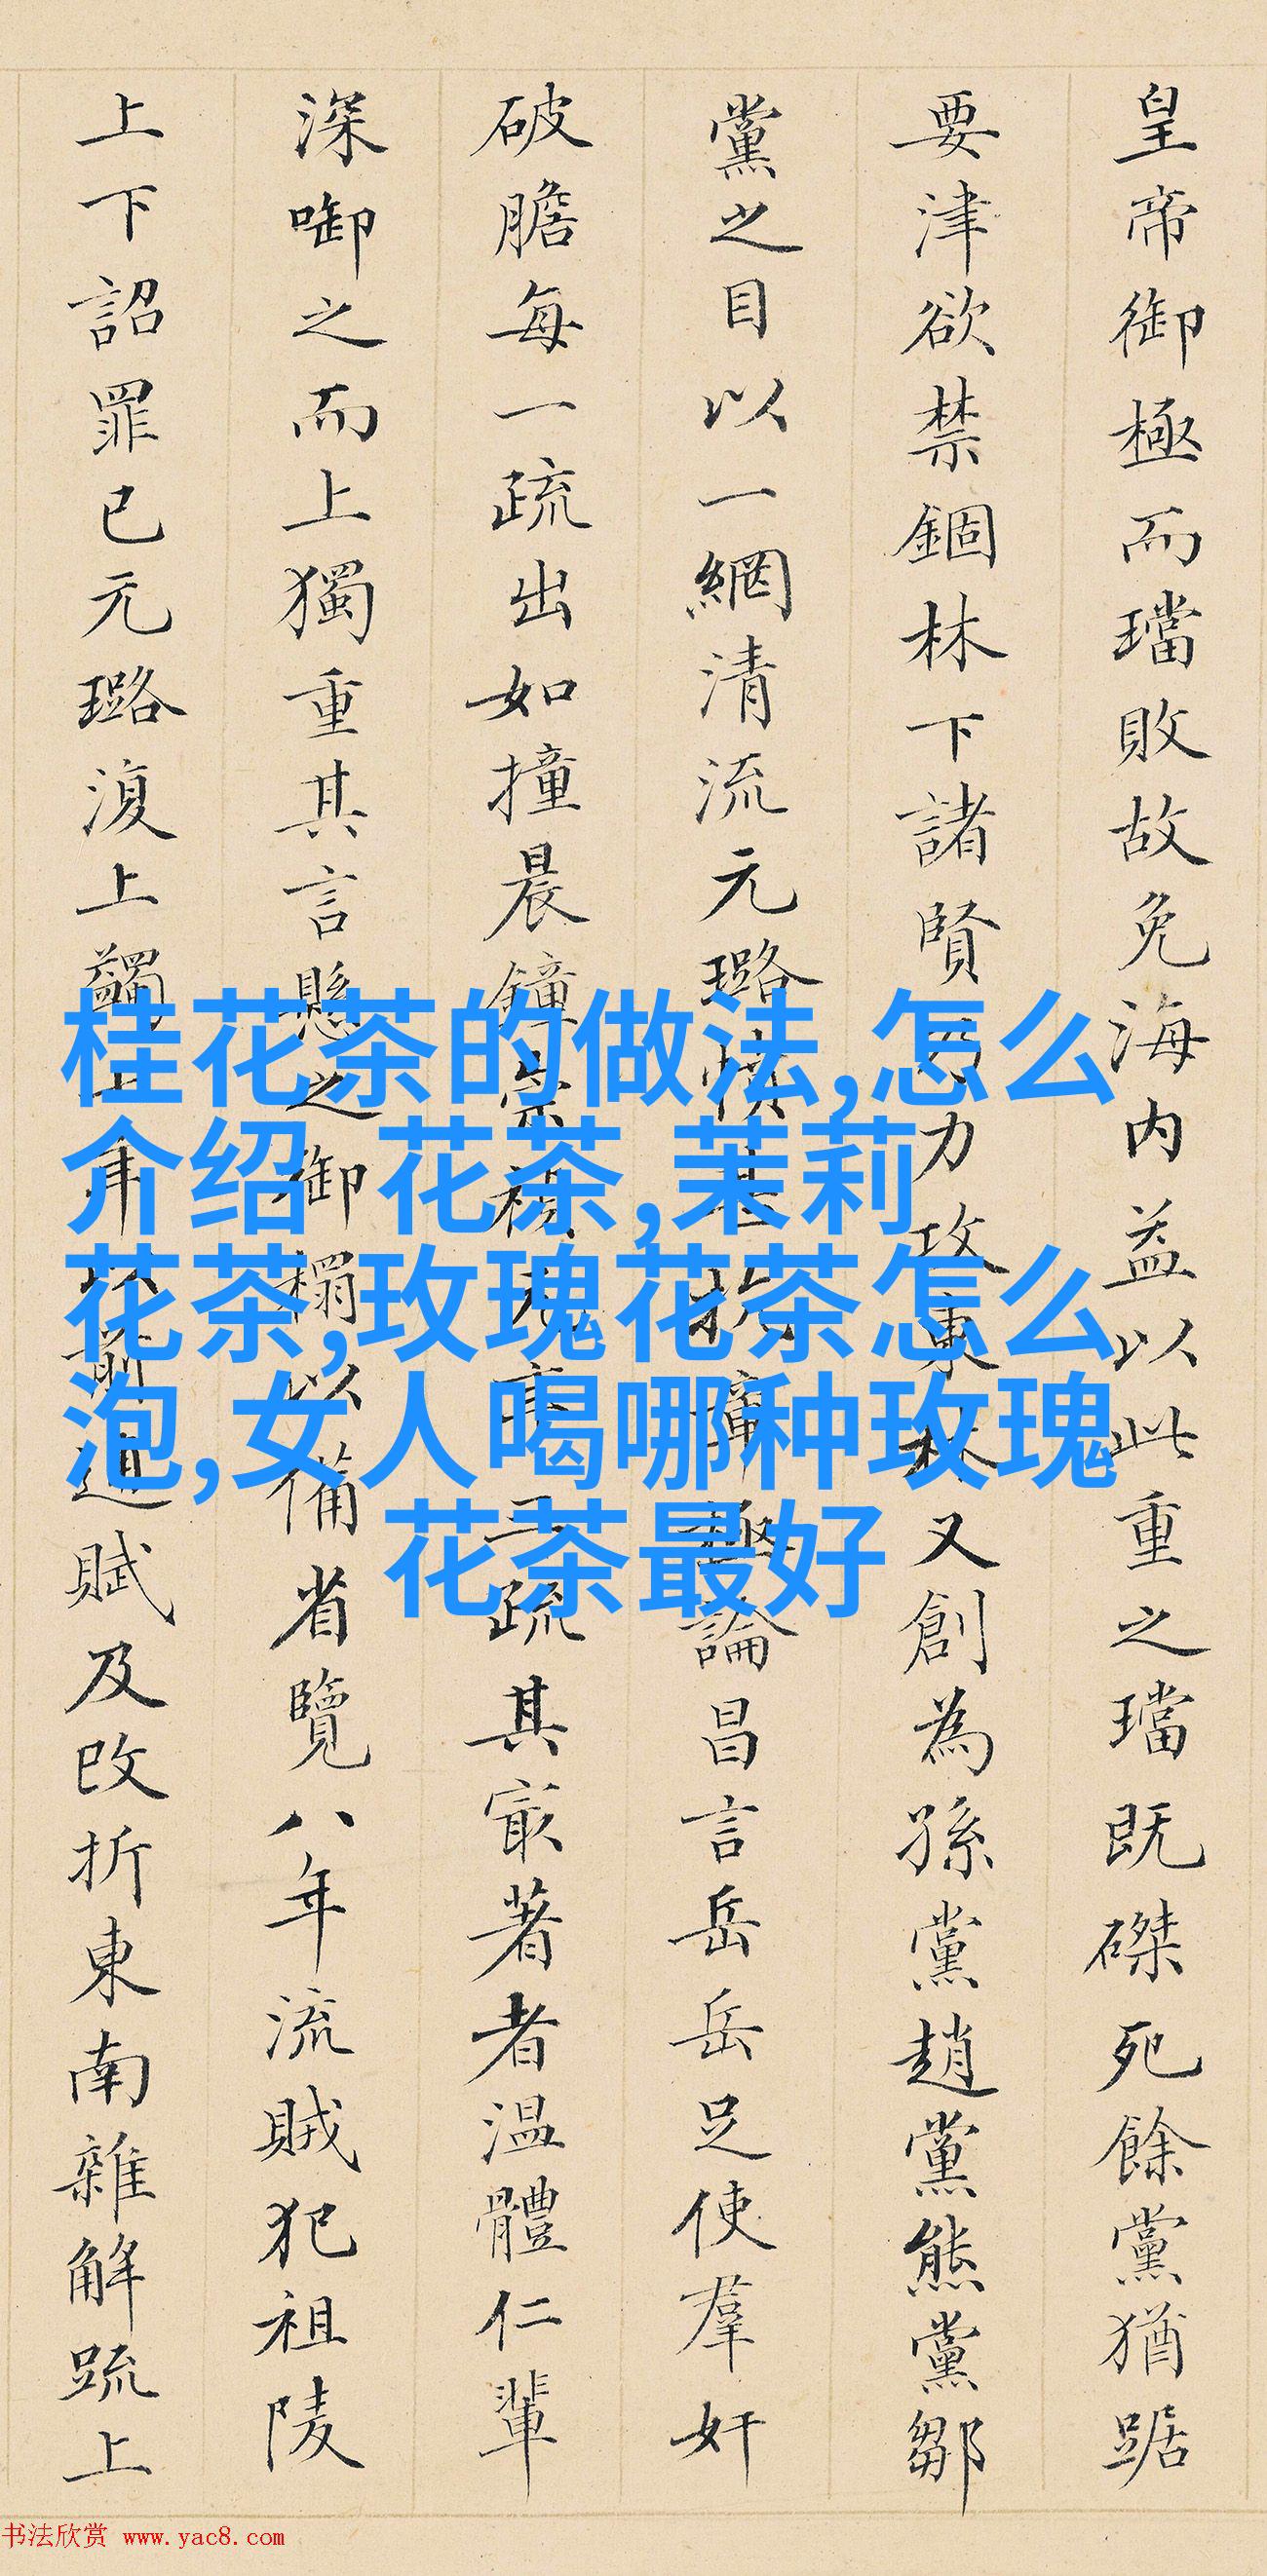 皇帝御極而璫敗故免海内益以此重之璫既磔死餘黨猶踞
要津欲禁錮林下諸賢力攻東林又創為孫黨趙黨熊黨鄒
黨之目以一網清流元璐憤甚抗章極論昌言岳岳足使羣奸
破膽每一疏出如撞晨鐘崇禎元年三疏其最著者溫體仁輩
深啣之而上獨重其言懸之御榻以備省覽八年流賊犯祖陵
上下詔罪已元璐復上蠲年以前逋賦及改折東南雜解疏上
桂花茶的做法,怎么
介绍 花茶,茉莉
花茶,玫瑰花茶怎么
泡,女人喝哪种玫瑰
花茶最好
书法欣赏 www.yac8.com